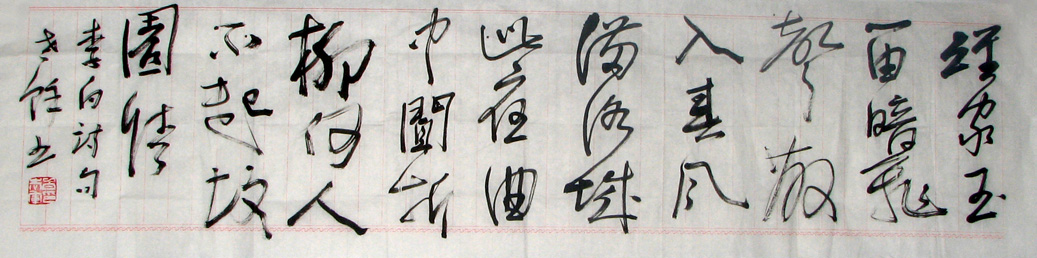 誰家玉
笛暗飛
聲散
入春风
滿洛城
此夜曲
中聞折
柳何人
不起故
園情
李白詩句
书